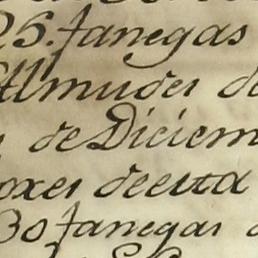 26. fanegas
Almudes de
de Diciem
oxes de esta
30 fanegas